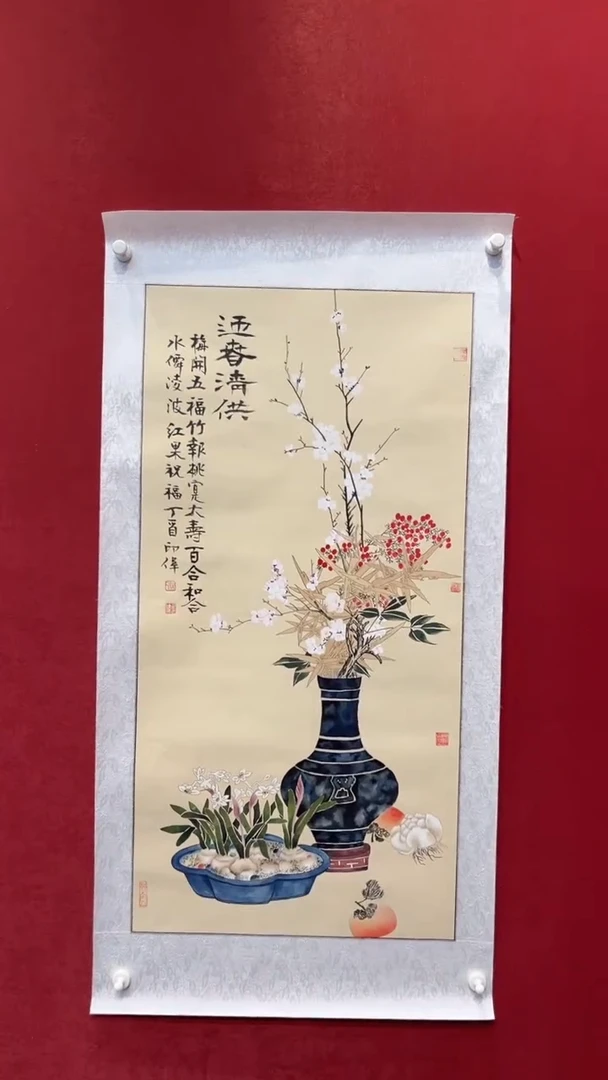 迎春清供
梅開五福竹報桃寔大壽百合和合
水僊凌波红果祝福丁酉印偉